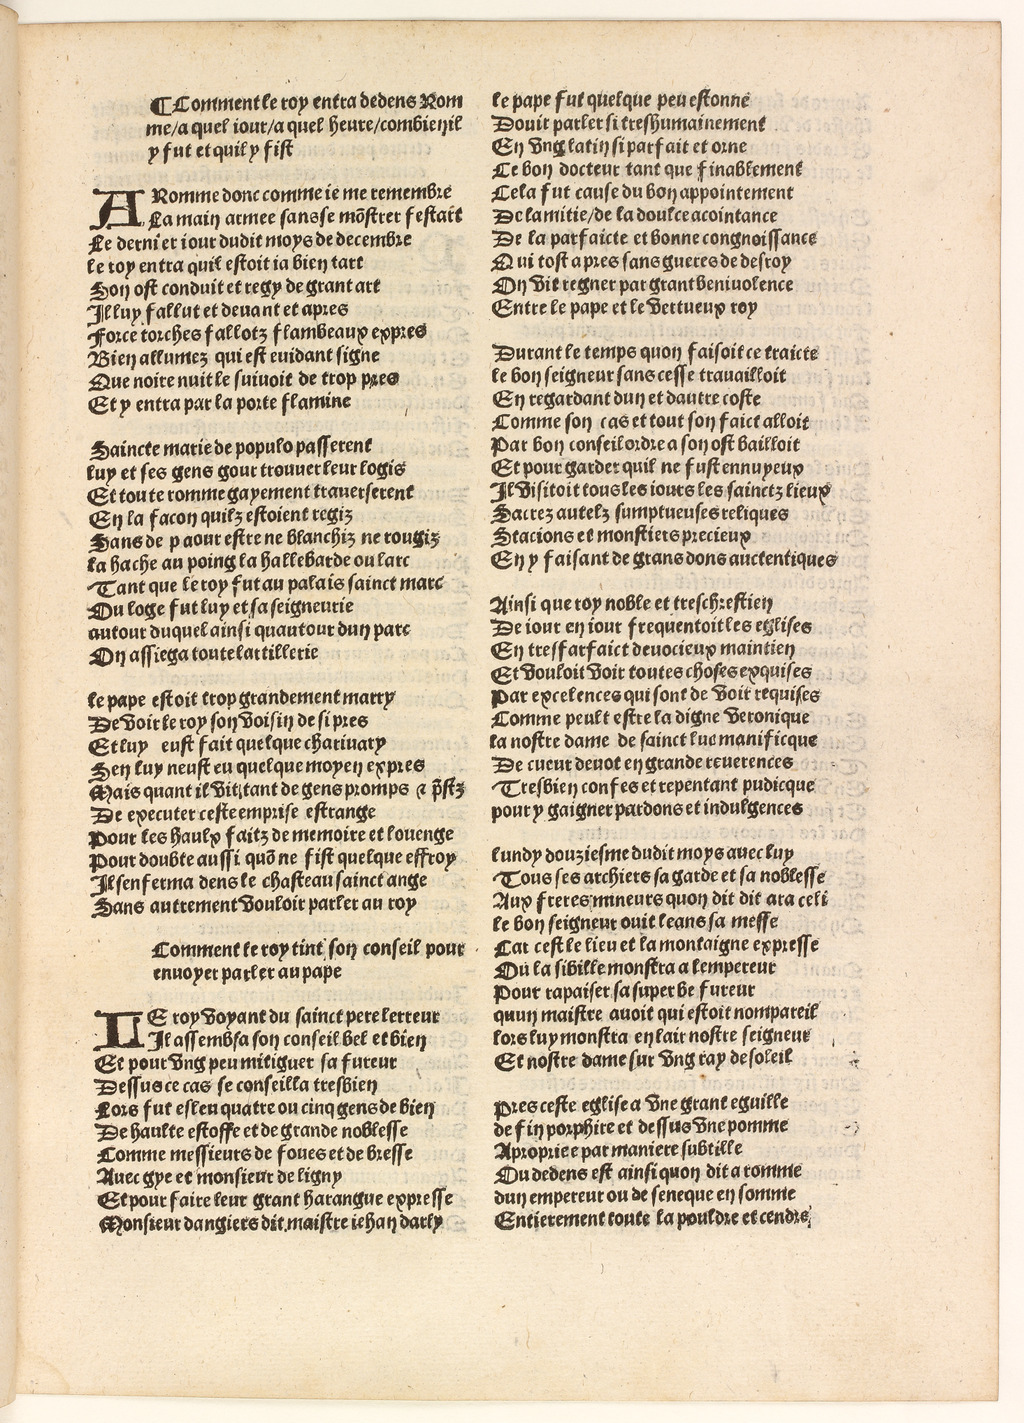 ¶ Comment le roy entra dedens Rom
me/a quel iour/a quel heure/combien il
y fut et quil y fist
A Romme donc comme ie me remembre
La main armee sans se mõstrer festart
Le dernier iour dudit moys de decembre
le roy entra quil estoit ia bien tart
Son ost conduit et regy de grant art
Il luy fallut et devant et apres
Force torches fallotz flambeaux expres
Bien allumez qui est euidant signe
Que noire nuit le suivoit de trop pres
Et y entra par la porte flamine
Saincte marie de populo passerent
luy et ses gens gour trouver leur logis
Et toute romme gayement traverserent
En la facon quilz estoient regiz
Sans de paour estre ne blanchiz ne rougiz
la hache au poing la hallebarde ou larc
Tant que le roy fut au palais sainct marc
Ou loge fut luy et sa seigneurie
autour duquel ainsi quautour dun parc
On assiega toute lartillerie
le pape estoit trop grandement marry
De voir le roy son voisin de si pres
Et luy eust fait quelque charivary
Sen luy neust eu quelque moyen expres
Mais quant il vit tant de gens promps ⁊ p̃stz
De executer ceste emprise estrange
Pour les haulx faitz de memoire et louenge
Pour doubte aussi quõ ne fist quelque effroy
Il senferma dens le chasteau sainct ange
Sans autrement vouloir parler au roy
Comment le roy tint son conseil pour
envoyer parler au pape
LE roy voyant du sainct pere lerreur
Il assembsa son conseil bel et bien
Et pour vng peu mitiguer sa fureur
Dessus ce cas se conseilla tresbien
Lors fut esleu quatre ou cinq gens de bien
De haulte estoffe et de grande noblesse
Comme messieurs de foues et de bresse
Avec gye et monsieur de ligny
Et pour faire leur grant harangue expresse
Monsieur dangiers dit maistre iehan darly
le pape fut quelque peu estonne
Douir parler si treshumainement
En vng latin si parfait et orne
Ce bon docteur tant que finablement
Cela fut cause du bon appointement
De lamitie/de la doulce acointance
De la parfaicte et bonne congnoissance
Qui tost apres sans gueres de desroy
On vit regner par grant benivolence
Entre le pape et le vertueux roy
Durant le temps quon faisoit ce traicte
le bon seigneur sans cesse travailloit
En regardant dun et dautre coste
Comme son cas et tout son faict alloit
Par bon conseil ordre a son ost bailloit
Et pour garder quil ne fust ennuyeux
Il visitoit tous les iours les sainctz lieux
Sacrez autelz sumptueuses reliques
Stacions et monstiers precieux
En y faisant de grans dons auctentiques
Ainsi que roy noble et treschrestien
De iour en iour frequentoit les eglises
En tresfarfaict devocieux maintien
Et vouloit voir toutes choses exquises
Par excelences qui sont de voir requises
Comme peult estre la digne veronique
la nostre dame de sainct luc manificque
De cueur devot en grande reverences
Tresbien confes et repentant pudicque
pour y gaigner pardons et indulgences
lundy douziesme dudit moys avec luy
Tous ses archiers sa garde et sa noblesse
Aux freres mineurs quon dit dit ara celi
le bon seigneur ouit leans sa messe
Car cest le lieu et la montaigne expresse
Ou la sibille monstra a lempereur
Pour rapaiser sa superbe fureur
quun maistre avoit qui estoit nompareil
lors luy monstra en lair nostre seigneur
Et nostre dame sur vng ray de soleil
Pres ceste eglise a vne grant eguille
de fin porphire et dessus vne pomme
Apropriee par maniere subtille
Ou dedens est ainsi quon dit a romme
dun empereur ou de seneque en somme
Entierement toute la pouldre et cendre